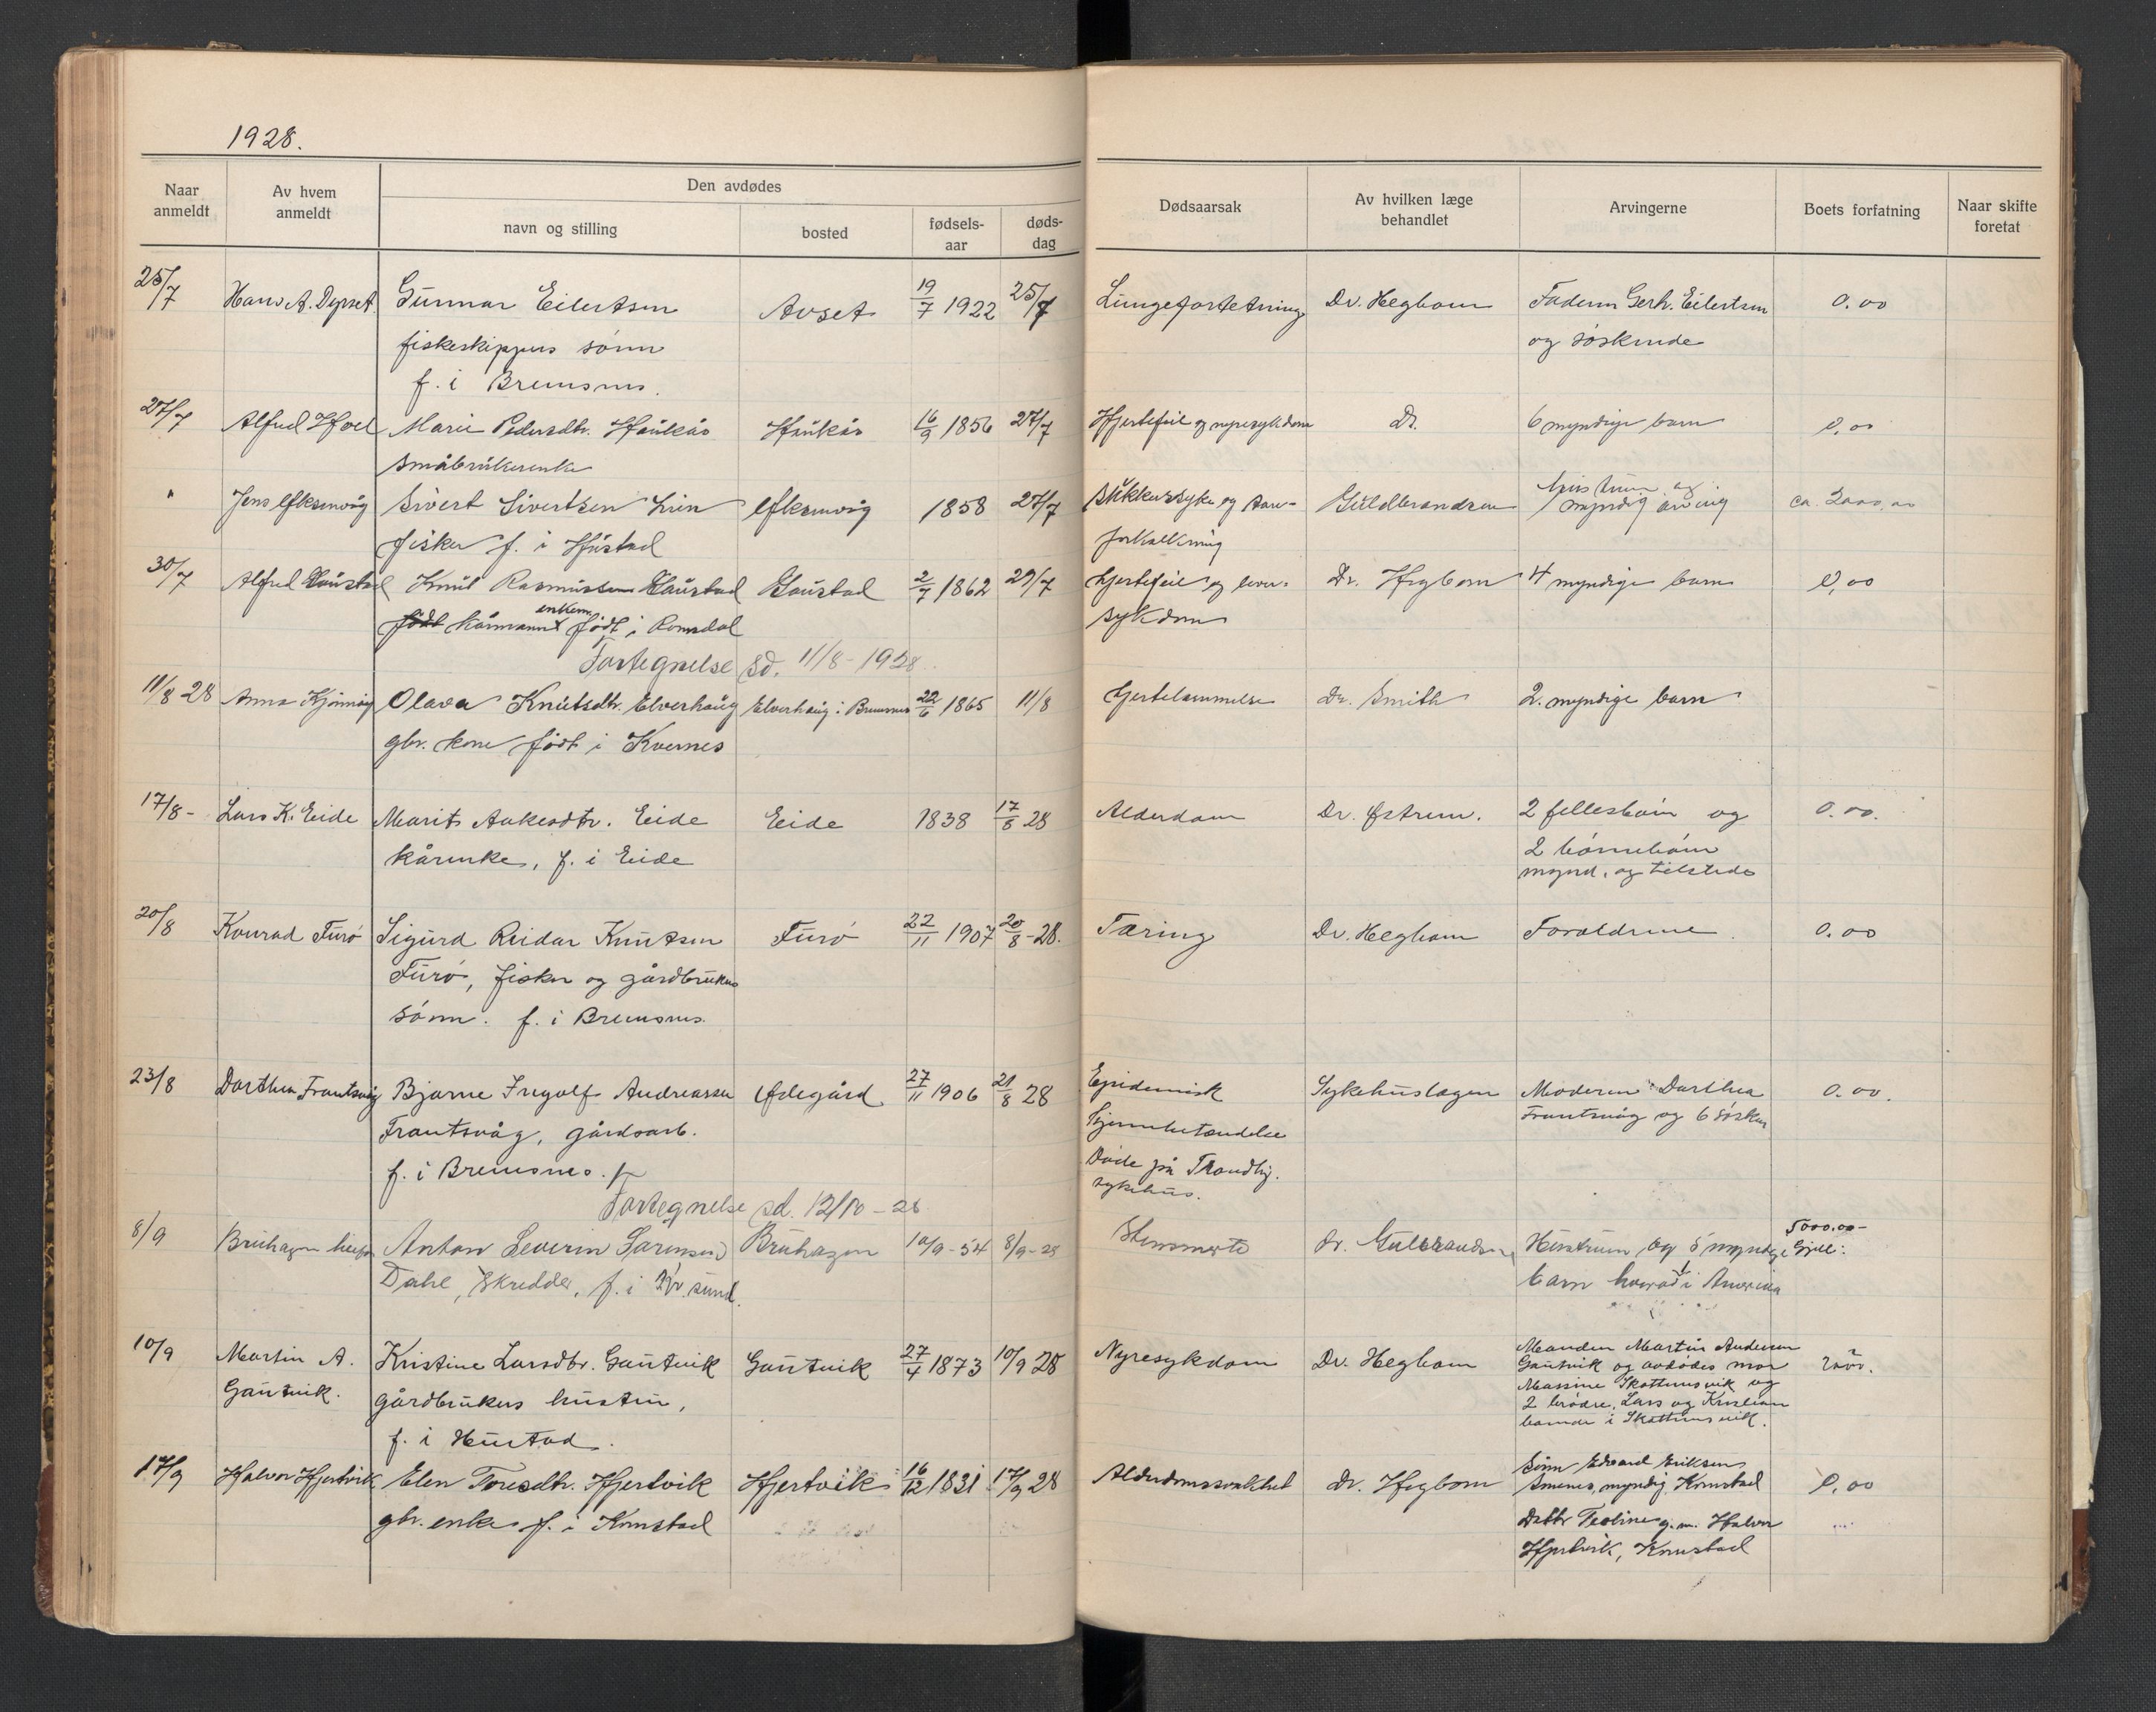 1928.
Naar anmeldt
Av hvem anmeldt
Den avdødes
navn og stilling
bosted
fødsels-aar
døds-dag
Dødsaarsak
Av hvilken læge behandlet
Arvingerne
Boets forfatning
Naar skifte foretat
25/7 Hans A. Dyrset. Gunnar Eilertsen Avset 19/7 1922 25/7 Lungefortetning Dr. Heghom Faderen Gerh. Eilertsen 0.00
fiskeskippers sønn og søskende
f. i Bremsnes.
27/7 Alfred Hoel Marie Pedersdtr. Haukås Haukås 16/9 1856 27/7 Hjertefeil og nyresykdom Dr. 6 myndige barn 0,00
småbrukerenke
" Jens Øksenvåg Sivert Sivertsen Lien Øksenvåg 1858 27/7 Sukkersyke og aare- Guldbrandsen 1 myndig arving ca. 2000,00
fisker f. i Hustad forkalkning
30/7 Alfred Gaustad Knut Rasmussen Gaustad Gaustad 2/7 1862 29/7 Hjertefeil og lever- Dr. Hegbom 4 myndige barn 0,00
født kårmann enkem. født i Romsdal sykdom
Fortegnelse sd. 11/8-1928.
11/8 28 Anna Kjønnøy Olava Knutsdtr. Elverhaug Elverhaug i Bremsnes 22/6 1865 11/8 Hjertelammelse Dr. Smith 2 myndige barn
gbr. kone født i Kvernes
17/8- Lars K. Eide Marit Aakesdtr. Eide Eide 1838 17/8 28 Alderdom Dr. Østrem. 2 fellesbarn og 0.00.
kårenke, f. i Eide 2 børnebørn
mynd. og tilstede
20/8 Konrad Furø Sigurd Reidar Knutsen Furø 22/11 1907 20/8-28. Tæring Dr. Heghom Forældrene. 0.00
Furø, fisker og gårdbrukers
sønn. f. i Bremsnes.
23/8 Dorthea Frantsvåg Bjarne Ingolf Andreassen Ødegård 27/11 1906 21/8 28 Epidemisk Sykehuslægen Moderen Dorthea 0.00.
Frantsvåg, gårdsarb. hjernebetændelse Frantsvåg og 6 søsken
f. i Bremsnes. Døde på Trondhj.
sykehus.
Fortegnelse sd. 12/10-28
8/9 Bruhagen Anton Severin Sørensen Bruhagen 10/9-54 8/9-28 Dr. Gulbrandsen Hustruen og 5 myndige 5000.00- Gjeld:
Dahl, skredder, f. i Kr.sund. barn hvorav 1 i Amerika
10/9 Martin A. Kristine Larsdtr. Gautvik Gautvik 27/4 1873 10/9 28 Nyresykdom Dr. Heghom Manden Martin Andersen
Gautvik. gårdbrukers hustru, Gautvik og avdødes mor
f. i Hustad. Massine Skottensvik og
2 brødre, Lars og Kristian
boende i Skottensvik.
17/9 Halvor Hjertvik Elen Toresdtr. Hjertvik Hjertvik 16/12 1831 17/9 28 Alderdomssvakhet Dr. Hegbom Sønn Edvard Eriksen 0,00
gbr. enke f. i Kornstad myndig, Kornstad
Datter g.m. Halvor
Hjertvik, Kornstad